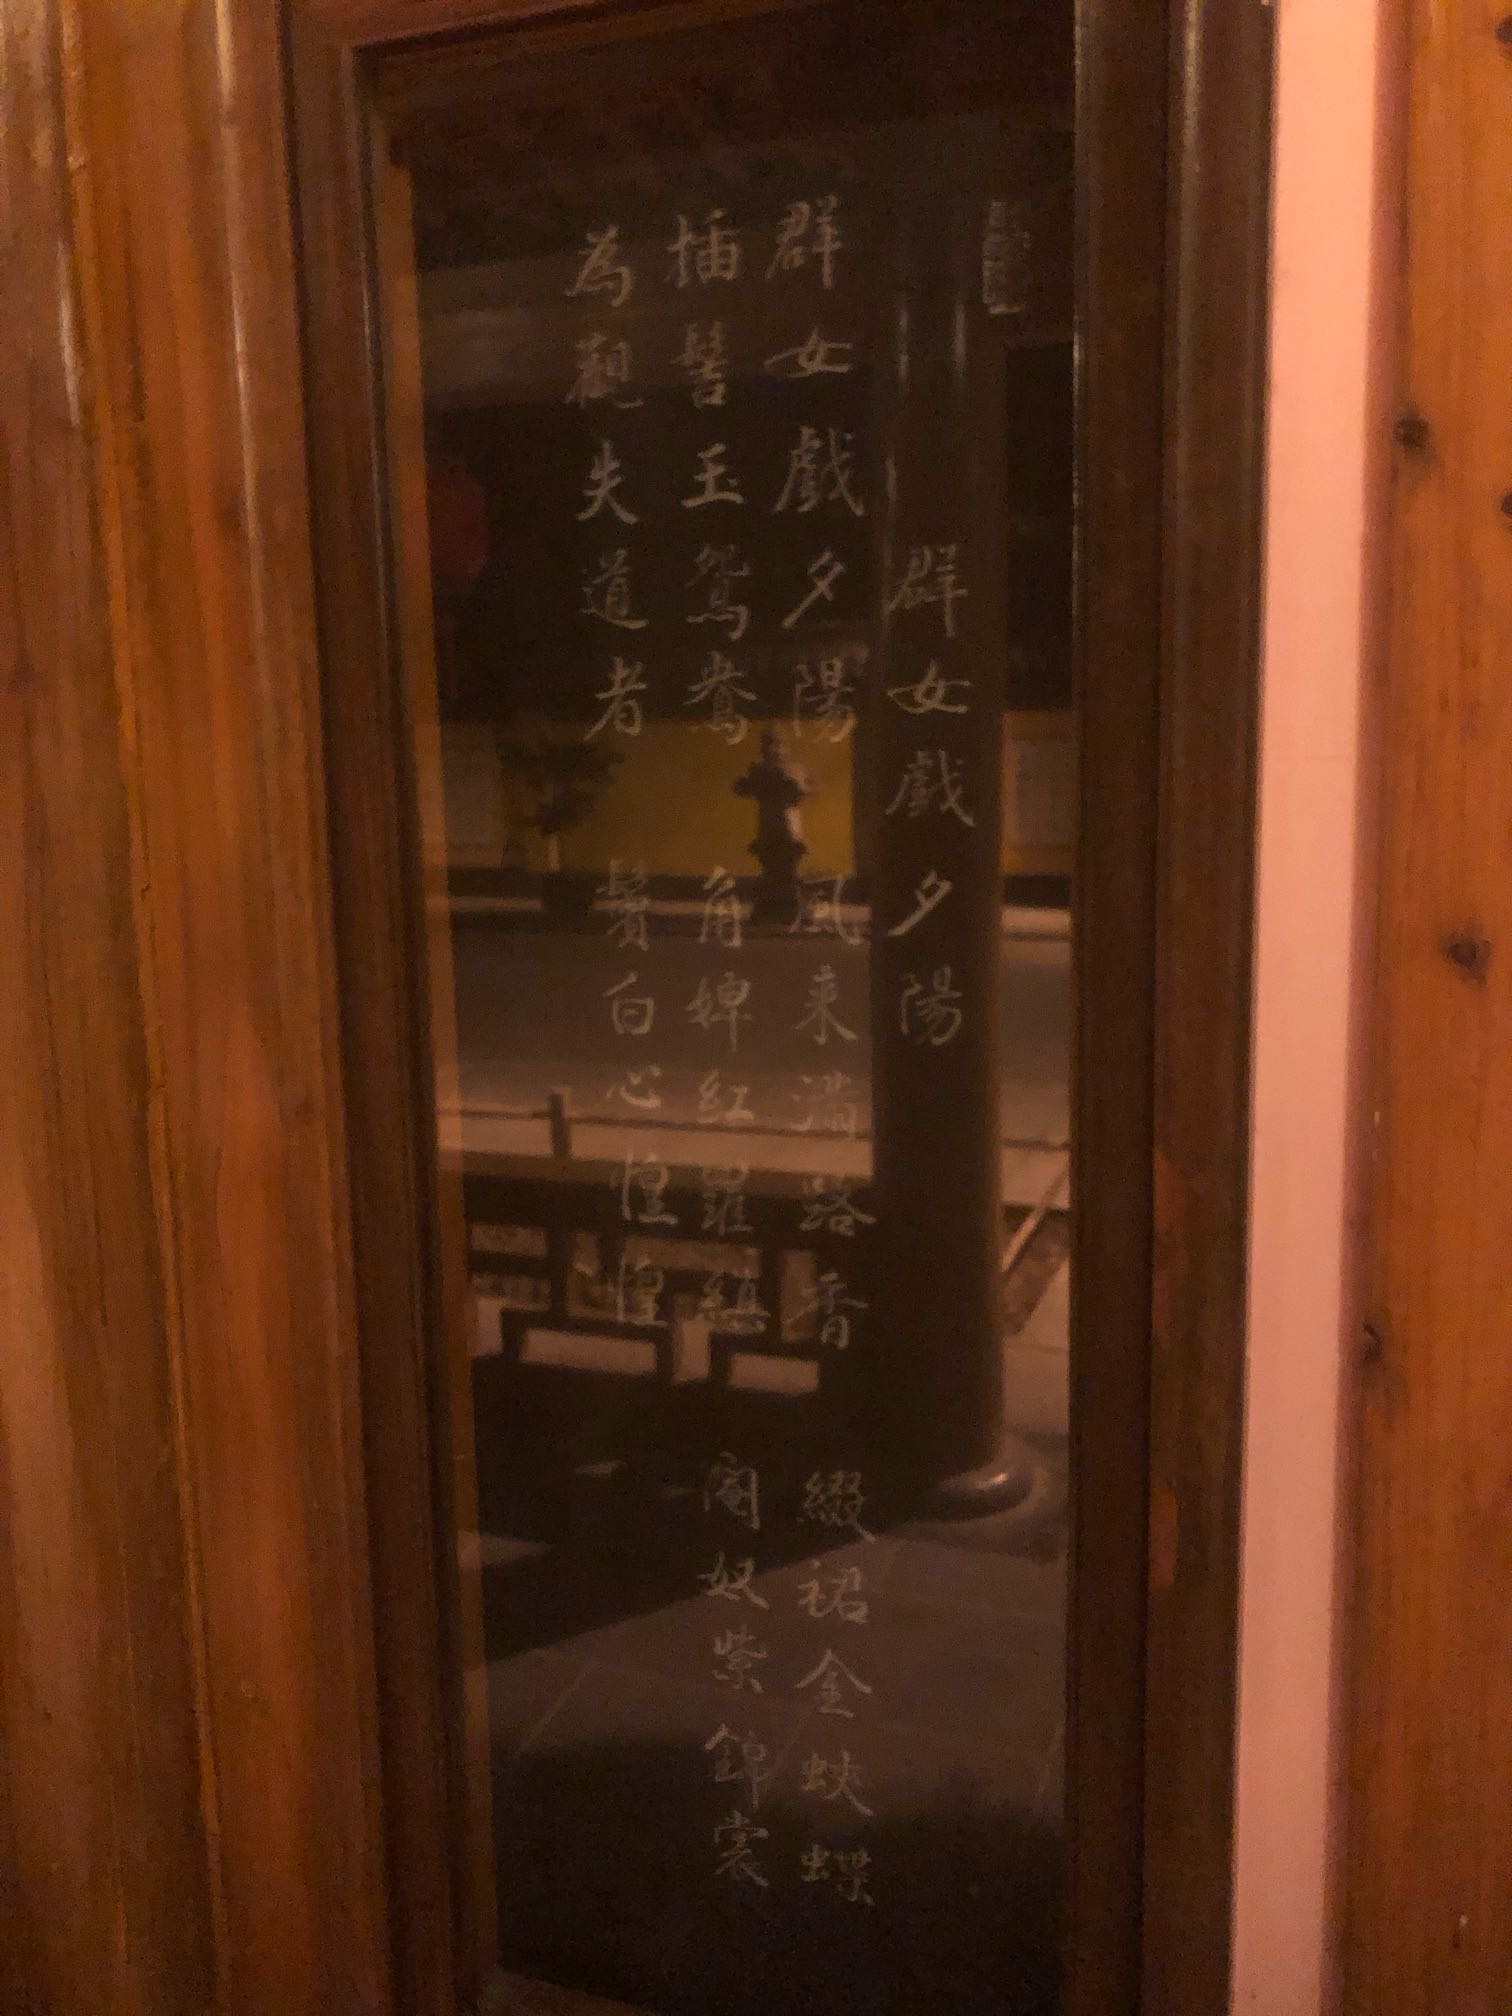 群女戲夕陽
群女戲夕陽 風来滿路香 綴裙金蛺蝶
插髻玉鴛鴦 角婢紅羅縝 閹奴紫錦裳
為觀失道者 鬢白心惶惶